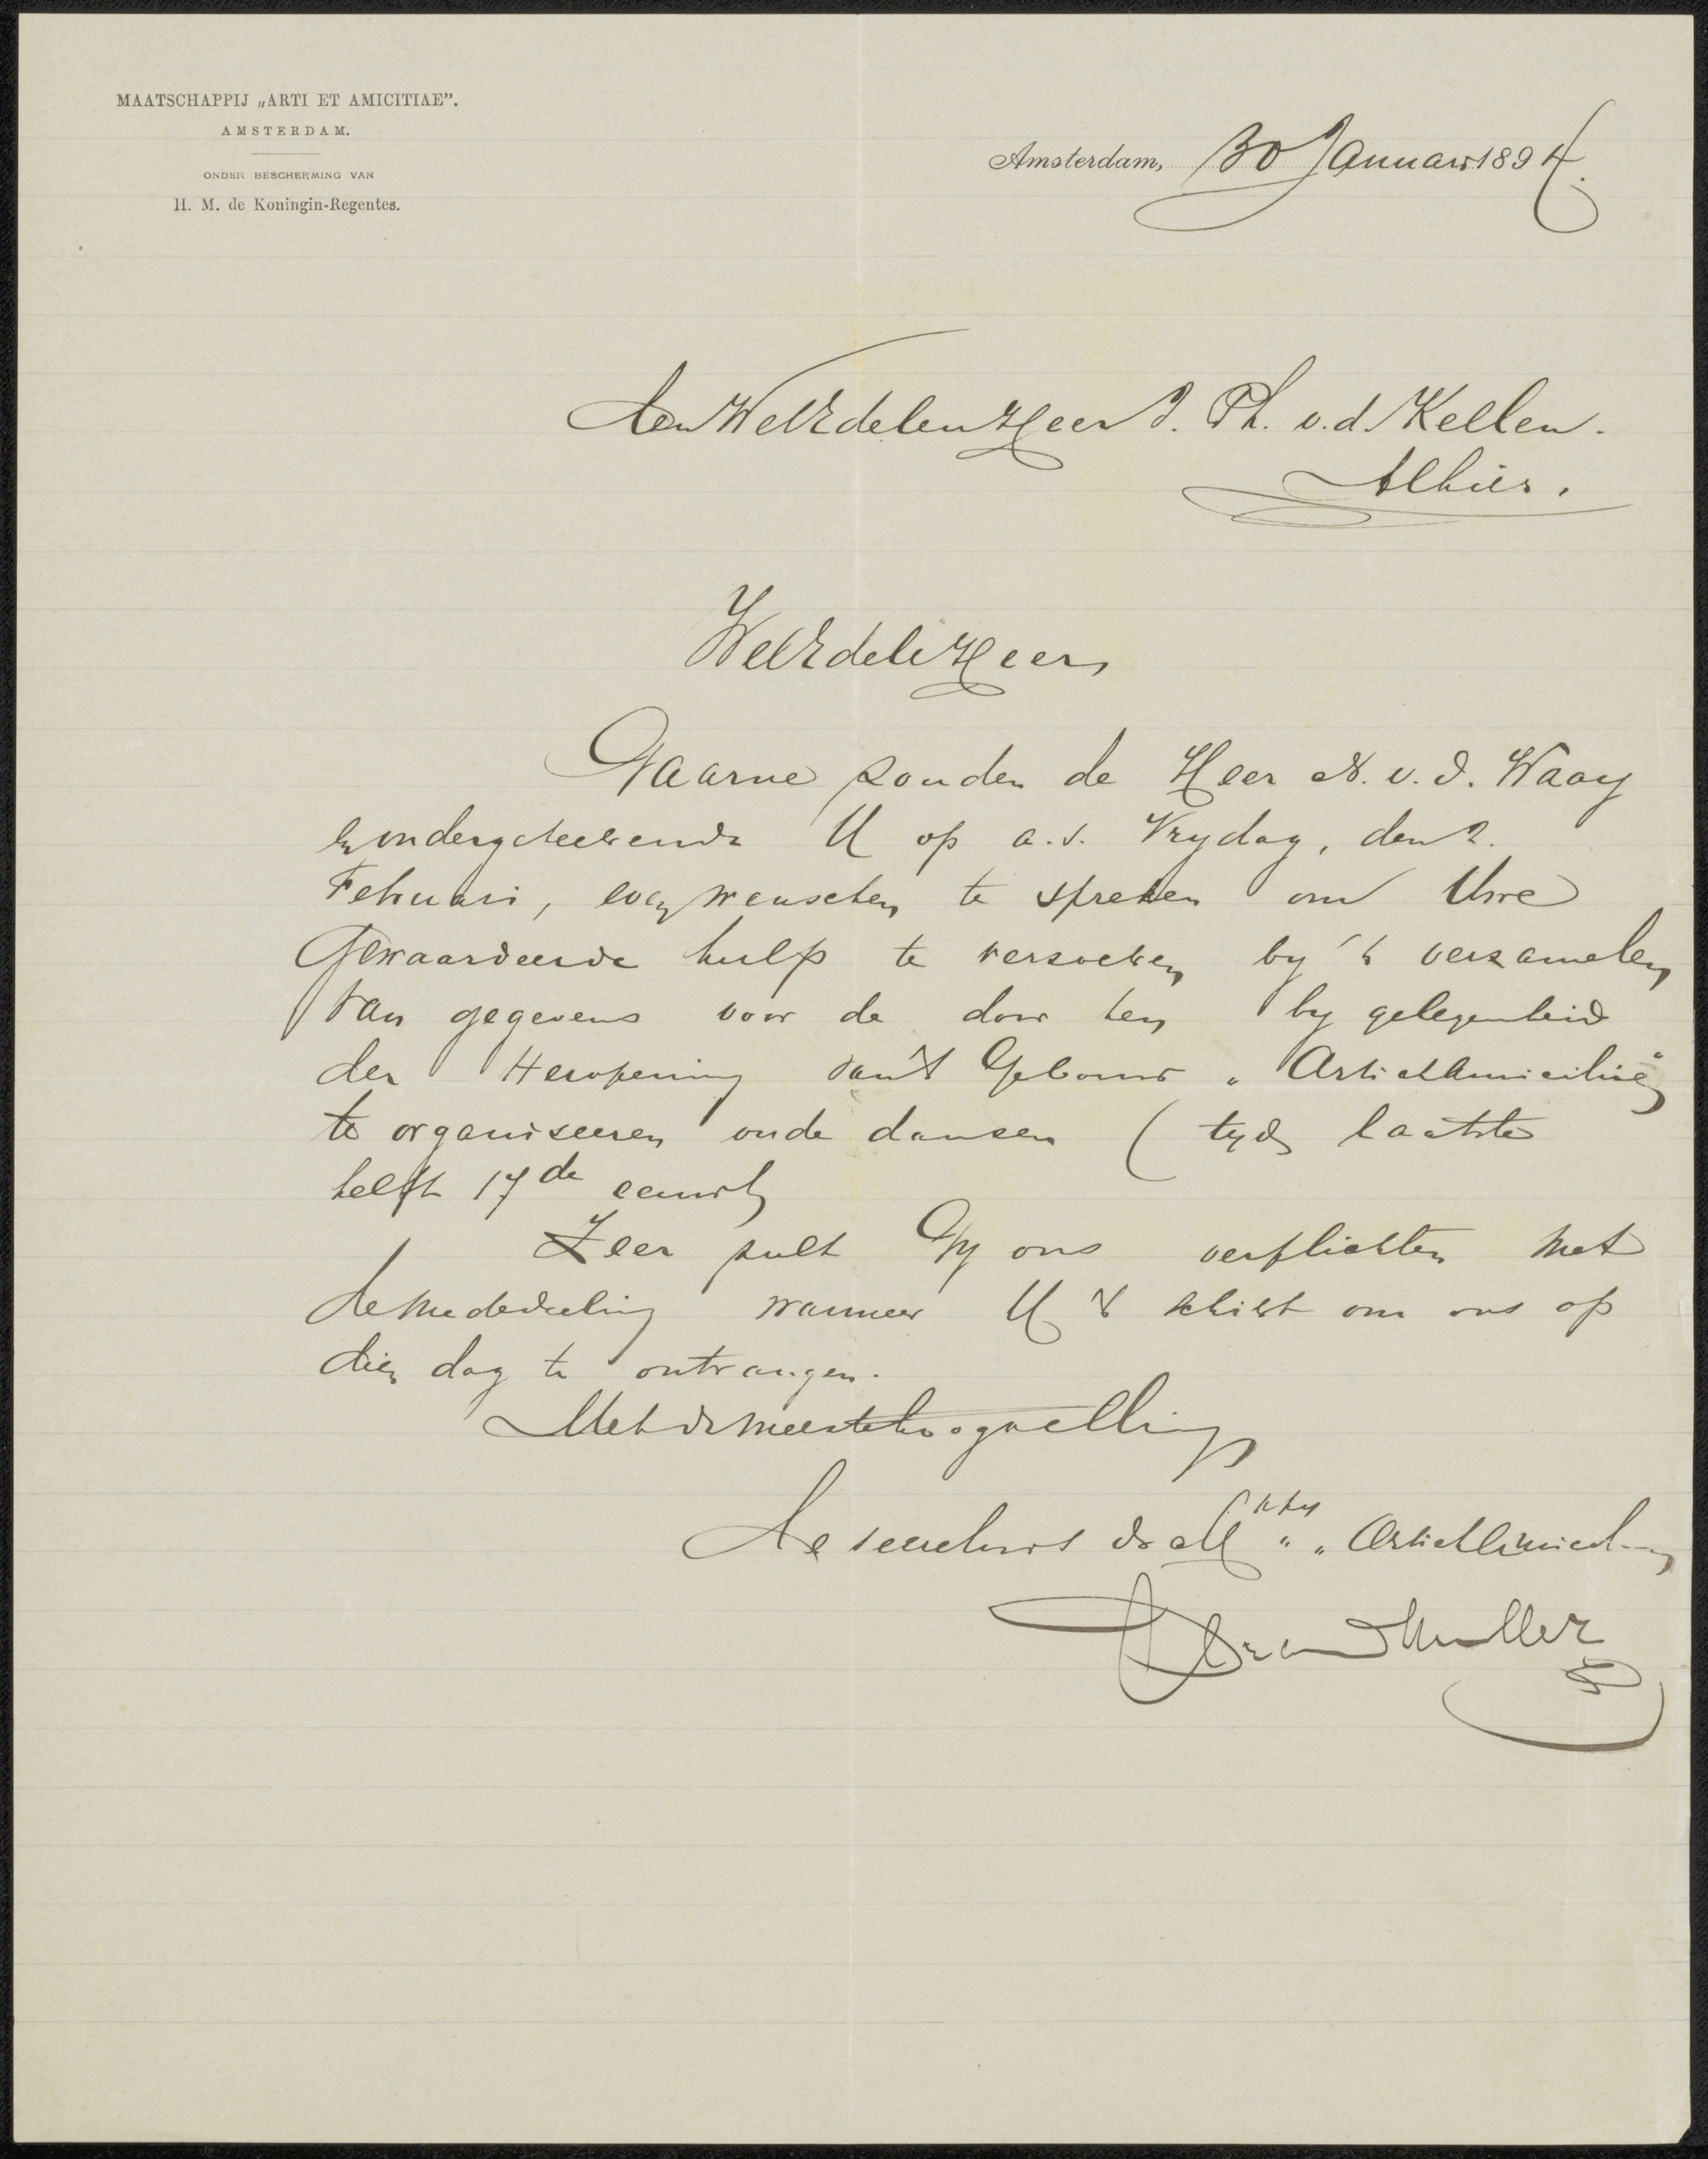 MAATSCHAPPIJ „ARTI ET AMICITIAE”.
AMSTERDAM.
ONDER BESCHERMING VAN
H. M. de Koningin-Regentes.
Amsterdam, 30 Januari 1894.
Den WelEdelen Heer J. Ph. v.d. Kellen.
Alhier.
WelEdele Heer,
Gaarne zouden de Heer N. v. d. Waay
en ondergeteekende U op a.s. Vrydag, den 2.
Februari, even wenschen te spreken om Uwe
Gewaardeerde hulp te verzoeken by 't verzamelen
van gegevens voor de door hen by gelegenheid
der Heropening van 't Gebouw „Arti et Amicitiae”
te organiseeren oude dansen (tyd laatste
helft 17de eeuw)
Zeer zult Gy ons verplichten met
de mededeeling wanneer U 't schikt om ons op
dien dag te ontvangen.
Met de meeste hoogachting
De secretaris der Mij „Arti et Amicitiae
Muller